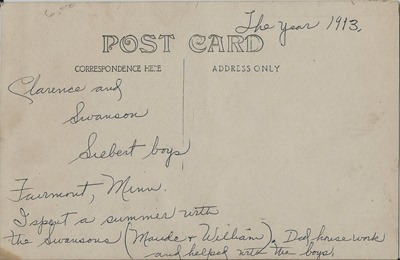 6.00
The Year 1913.
POST CARD
CORRESPONDENCE HERE
ADDRESS ONLY
Clarence and
Swanson
Siebert boys
Fairmont, Minn.
I spent a summer with
the Swansons (Maude & William). Did house work
and helped with the boys.